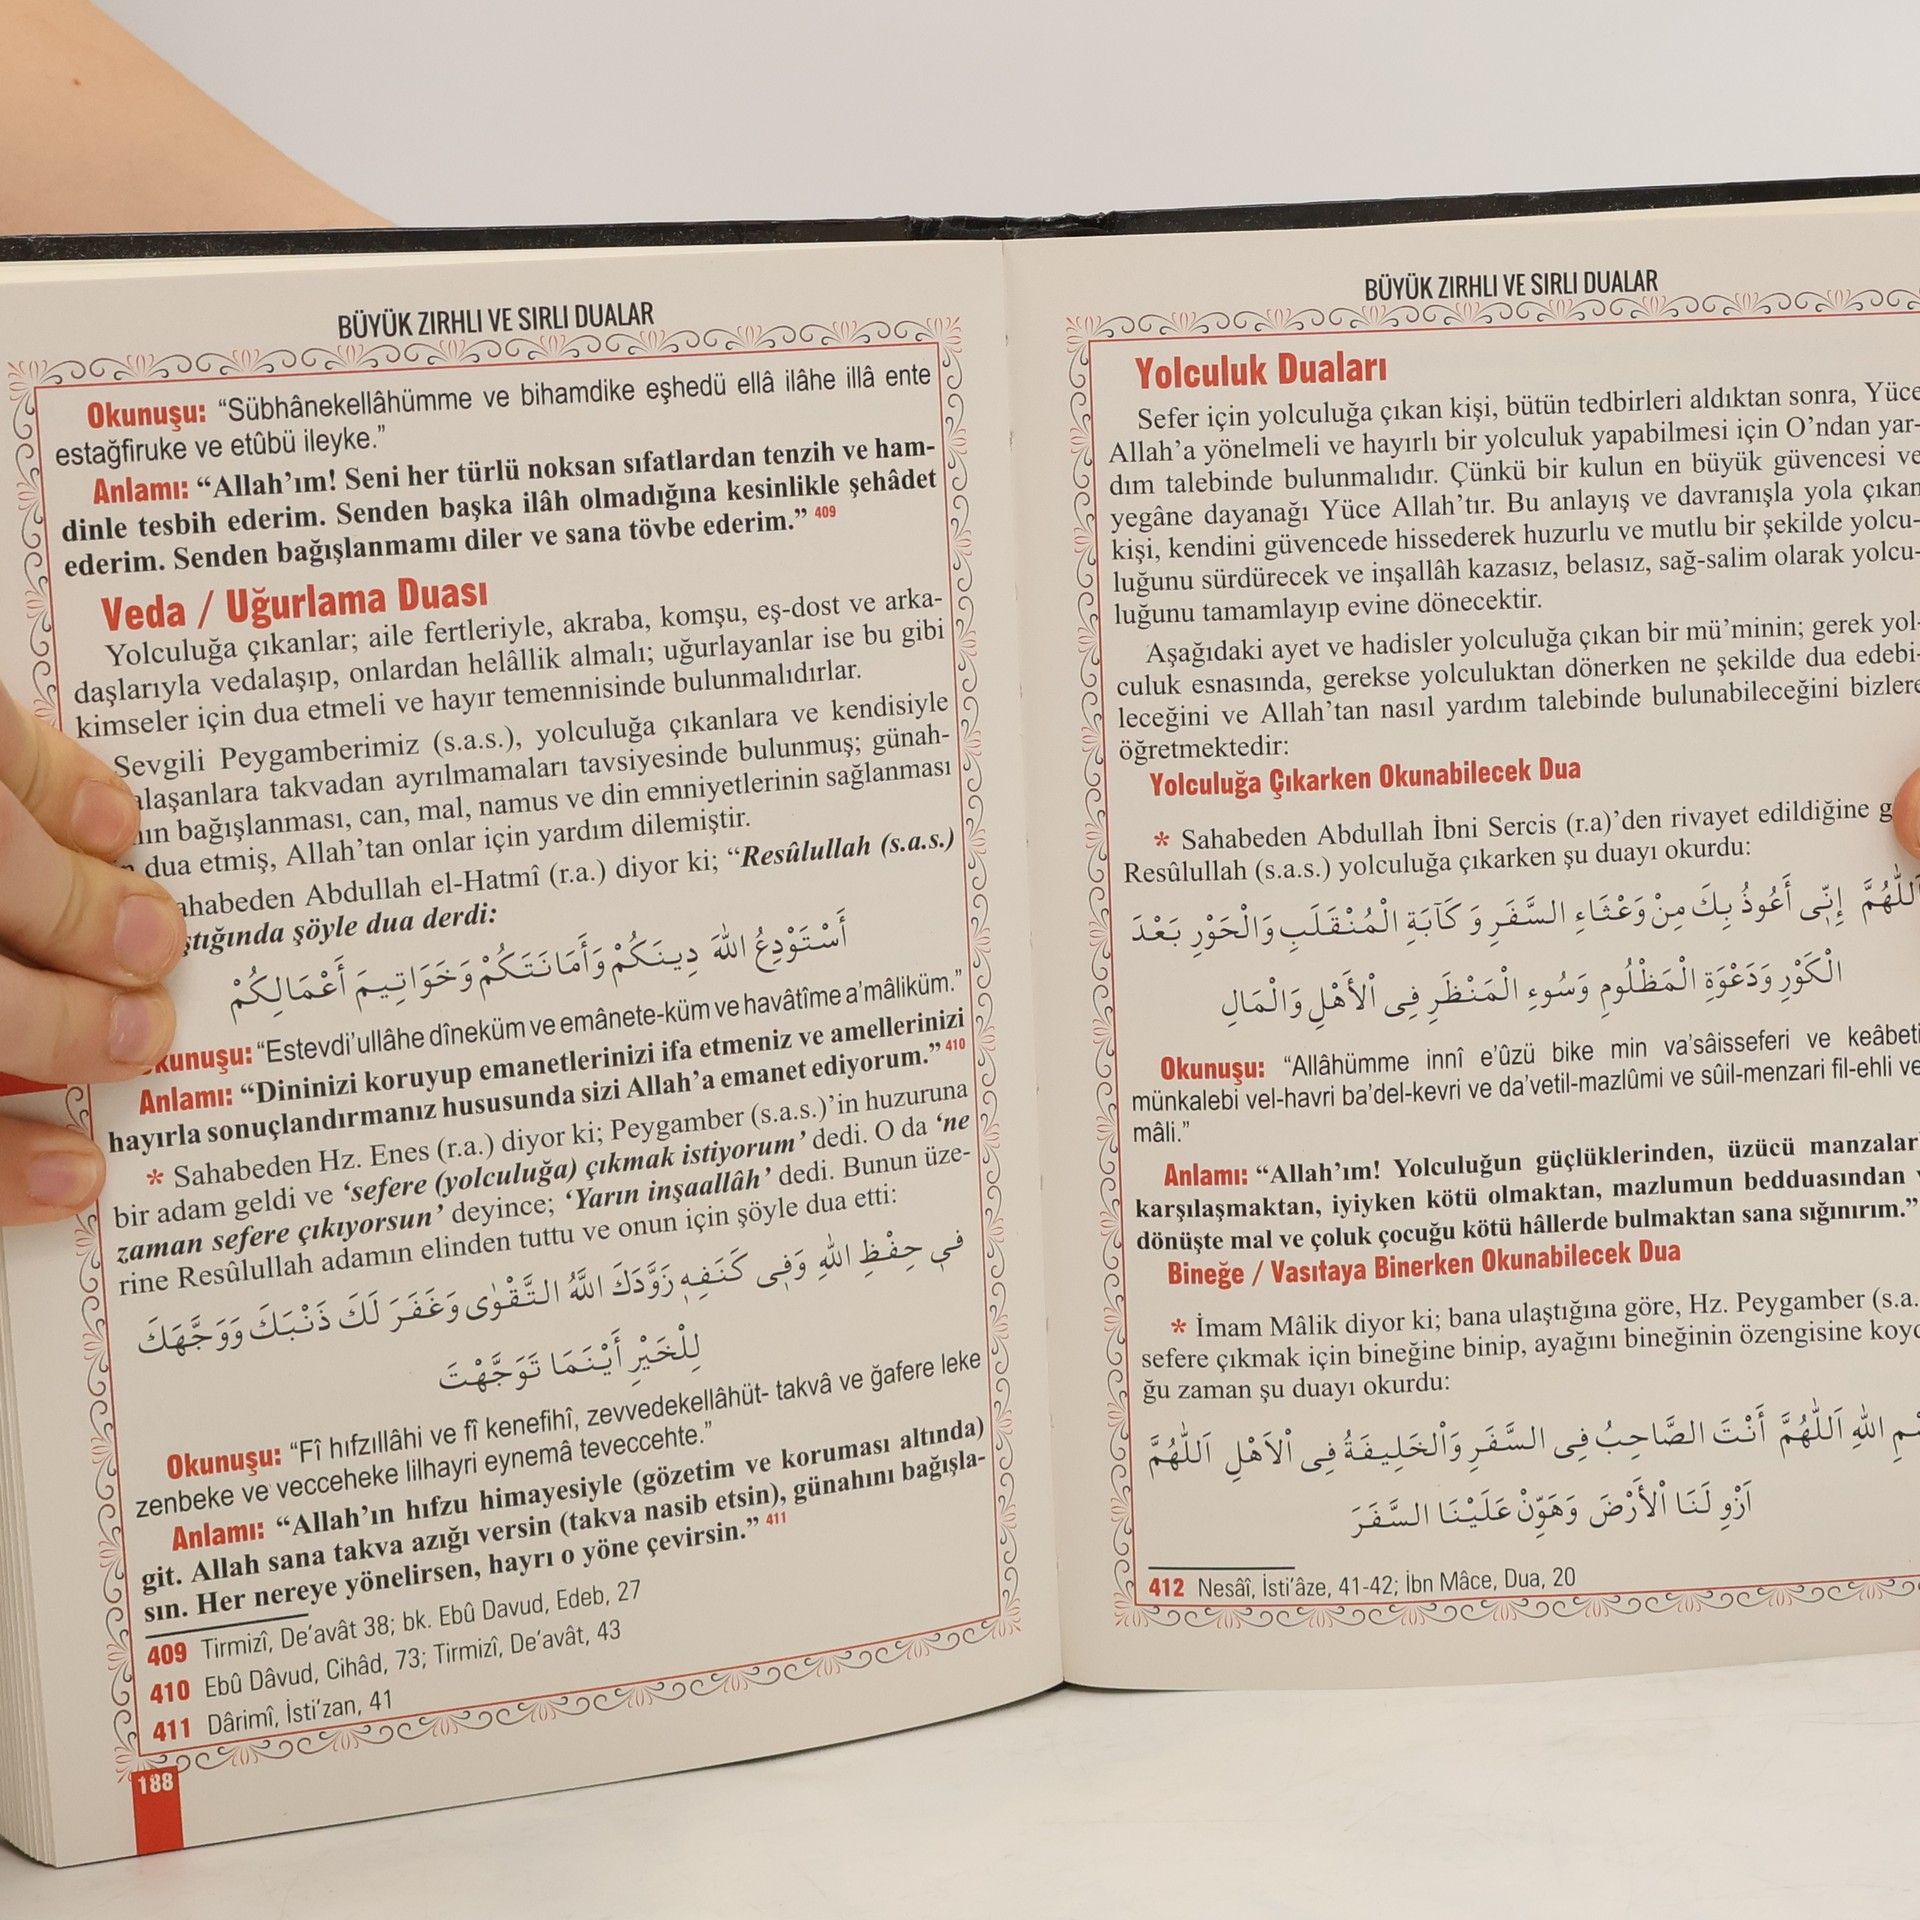 BÜYÜK ZIRHLI VE SIRLI DUALAR
Okunuşu: “Sübhânekellâhümme ve bihamdike eşhedü ellâ ilâhe illâ ente
estağfiruke ve etûbü ileyke.”
Anlamı: “Allah’ım! Seni her türlü noksan sıfatlardan tenzih ve ham-
dinle tesbih ederim. Senden başka ilâh olmadığına kesinlikle şehâdet
ederim. Senden bağışlanmamı diler ve sana tövbe ederim.” 409
Veda / Uğurlama Duası
Yolculuğa çıkanlar; aile fertleriyle, akraba, komşu, eş-dost ve arka-
daşlarıyla vedalaşıp, onlardan helâllik almalı; uğurlayanlar ise bu gibi
kimseler için dua etmeli ve hayır temennisinde bulunmalıdırlar.
Sevgili Peygamberimiz (s.a.s.), yolculuğa çıkanlara ve kendisiyle
alaşanlara takvadan ayrılmamaları tavsiyesinde bulunmuş; günah-
bağışlanması, can, mal, namus ve din emniyetlerinin sağlanması
dua etmiş, Allah’tan onlar için yardım dilemiştir.
ahabeden Abdullah el-Hatmî (r.a.) diyor ki; “Resûlullah (s.a.s.)
ştığında şöyle dua derdi:
أَسْتَوْدِعُ اللّٰهَ دِينَكُمْ وَأَمَانَتَكُمْ وَخَوَاتِيمَ أَعْمَالِكُمْ
kunuşu: “Estevdi’ullâhe dîneküm ve emânete-küm ve havâtîme a’mâliküm.”
Anlamı: “Dininizi koruyup emanetlerinizi ifa etmeniz ve amellerinizi
hayırla sonuçlandırmanız hususunda sizi Allah’a emanet ediyorum.” 410
* Sahabeden Hz. Enes (r.a.) diyor ki; Peygamber (s.a.s.)’in huzuruna
bir adam geldi ve ‘sefere (yolculuğa) çıkmak istiyorum’ dedi. O da ‘ne
zaman sefere çıkıyorsun’ deyince; ‘Yarın inşaallâh’ dedi. Bunun üze-
rine Resûlullah adamın elinden tuttu ve onun için şöyle dua etti:
فِي حِفْظِ اللّٰهِ وَفِي كَنَفِهِ زَوَّدَكَ اللّٰهُ التَّقْوٰى وَغَفَرَ لَكَ ذَنْبَكَ وَوَجَّهَكَ
لِلْخَيْرِ أَيْنَمَا تَوَجَّهْتَ
Okunuşu: “Fî hıfzıllâhi ve fî kenefihî, zevvedekellâhüt- takvâ ve ğafere leke
zenbeke ve vecceheke lilhayri eynemâ teveccehte.”
Anlamı: “Allah’ın hıfzu himayesiyle (gözetim ve koruması altında)
git. Allah sana takva azığı versin (takva nasib etsin), günahını bağışla-
sın. Her nereye yönelirsen, hayrı o yöne çevirsin.” 411
409 Tirmizî, De’avât 38; bk. Ebû Davud, Edeb, 27
410 Ebû Dâvud, Cihâd, 73; Tirmizî, De’avât, 43
411 Dârimî, İsti’zan, 41
188
BÜYÜK ZIRHLI VE SIRLI DUALAR
Yolculuk Duaları
Sefer için yolculuğa çıkan kişi, bütün tedbirleri aldıktan sonra, Yüce
Allah’a yönelmeli ve hayırlı bir yolculuk yapabilmesi için O’ndan yar-
dım talebinde bulunmalıdır. Çünkü bir kulun en büyük güvencesi ve
yegâne dayanağı Yüce Allah’tır. Bu anlayış ve davranışla yola çıkan
kişi, kendini güvencede hissederek huzurlu ve mutlu bir şekilde yolcu-
luğunu sürdürecek ve inşallâh kazasız, belasız, sağ-salim olarak yolcu-
luğunu tamamlayıp evine dönecektir.
Aşağıdaki ayet ve hadisler yolculuğa çıkan bir mü’minin; gerek yol-
culuk esnasında, gerekse yolculuktan dönerken ne şekilde dua edebi-
leceğini ve Allah’tan nasıl yardım talebinde bulunabileceğini bizlere
öğretmektedir:
Yolculuğa Çıkarken Okunabilecek Dua
* Sahabeden Abdullah İbni Sercis (r.a)’den rivayet edildiğine g
Resûlullah (s.a.s.) yolculuğa çıkarken şu duayı okurdu:
اَللّٰهُمَّ إِنِّي أَعُوذُ بِكَ مِنْ وَعْثَاءِ السَّفَرِ وَ كَآبَةِ الْمُنْقَلَبِ وَالْحَوْرِ بَعْدَ
الْكَوْرِ وَدَعْوَةِ الْمَظْلُومِ وَسُوءِ الْمَنْظَرِ فِي الْأَهْلِ وَالْمَالِ
Okunuşu: “Allâhümme innî e’ûzü bike min va’sâisseferi ve keâbeti
münkalebi vel-havri ba’del-kevri ve da’vetil-mazlûmi ve sûil-menzari fil-ehli ve
mâli.”
Anlamı: “Allah’ım! Yolculuğun güçlüklerinden, üzücü manzalar
karşılaşmaktan, iyiyken kötü olmaktan, mazlumun bedduasından v
dönüşte mal ve çoluk çocuğu kötü hâllerde bulmaktan sana sığınırım.”
Bineğe / Vasıtaya Binerken Okunabilecek Dua
* İmam Mâlik diyor ki; bana ulaştığına göre, Hz. Peygamber (s.a.
sefere çıkmak için bineğine binip, ayağını bineğinin özengisine koyd
ğu zaman şu duayı okurdu:
سْمِ اللّٰهِ اَللّٰهُمَّ أَنْتَ الصَّاحِبُ فِي السَّفَرِ وَالْخَلِيفَةُ فِي الْاَهْلِ اَللّٰهُمَّ
اَزْوِ لَنَا الْأَرْضَ وَهَوِّنْ عَلَيْنَا السَّفَرَ
412 Nesâî, İsti’âze, 41-42; İbn Mâce, Dua, 20